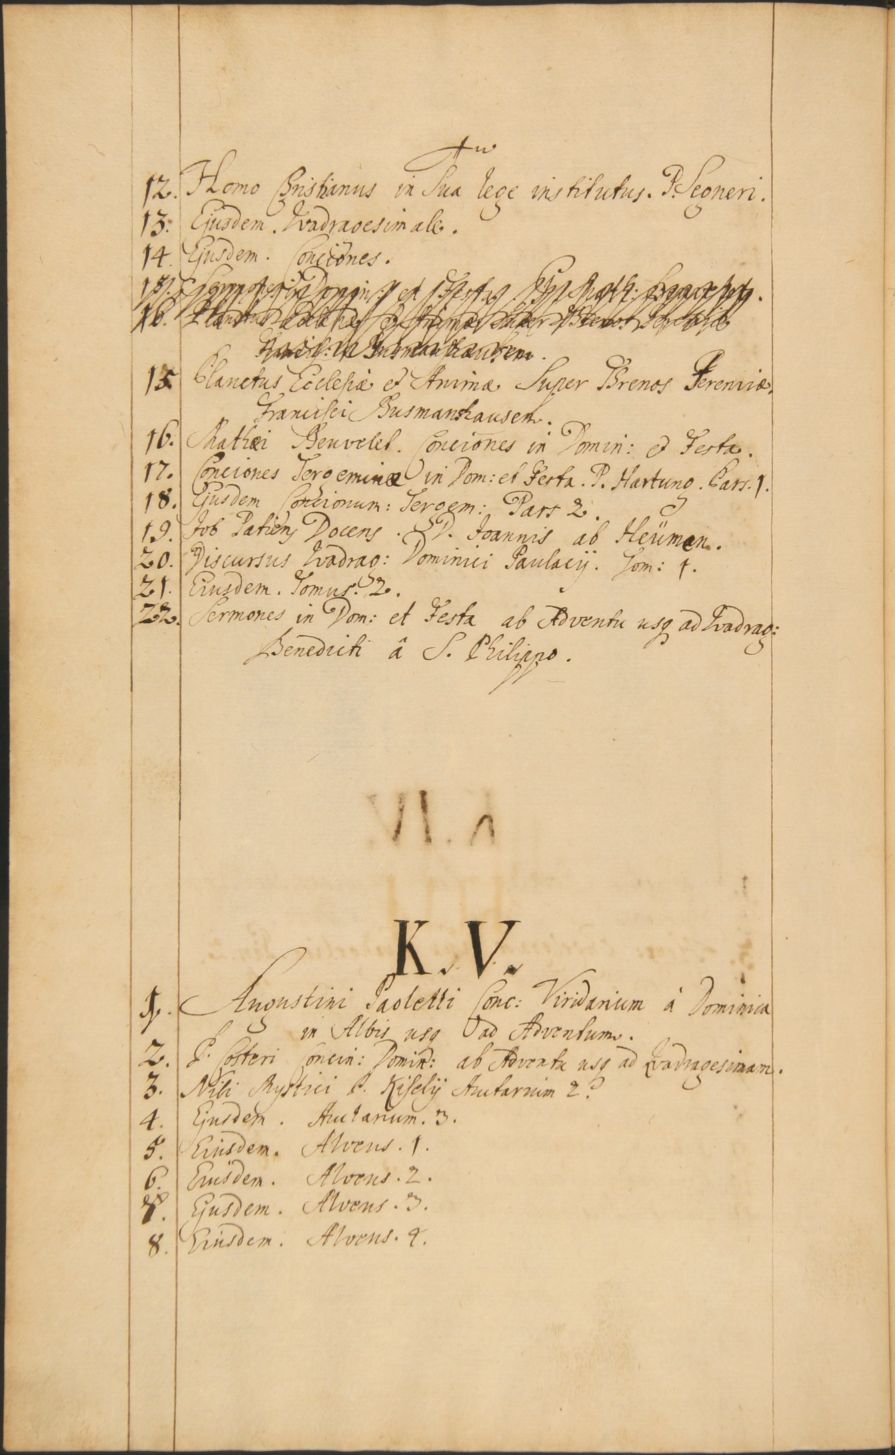 12. Homo Christianus in sua lege institutus. P. Segneri.
13. Ejusdem. Quadragesimale.
14. Ejusdem. Conciones.
15 Planctus Ecclesiæ et Animæ Super Threnos Jeremiæ,
Francisci Busmanshausen.
16. Mathæi Beuvelet. Conciones in Domin: et Festa.
17. Conciones Tergeminæ in Dom: et Festa. P. Hartung. Pars. 1.
18. Ejusdem Concionum: Tergem: Pars 2.
19. Job Patiens Docens. D. Joannis ab Heümen.
20. Discursus Quadrag: Dominici Paulacij. Tom: 1.
21. Eiusdem. Tomus. 2.
22. Sermones in Dom: et Festa ab Adventu usq ad Quadrag:
Benedicti â S. Philippo.
K.IV.
K.V.
1. Augustini Paoletti Conc: Viridarium â Dominica
in Albis usq ad Adventum.
2. P. Costeri Concin: Domin: ab Adventu usq ad Quadragesimam.
3. Nili Mystici P. Kiselÿ Auctarium 2?
4. Ejusdem. Auctarium. 3.
5. Eiusdem. Alveus. 1.
6. Eiusdem. Alveus. 2.
7. Ejusdem. Alveus. 3.
8. Eiusdem. Alveus. 4.